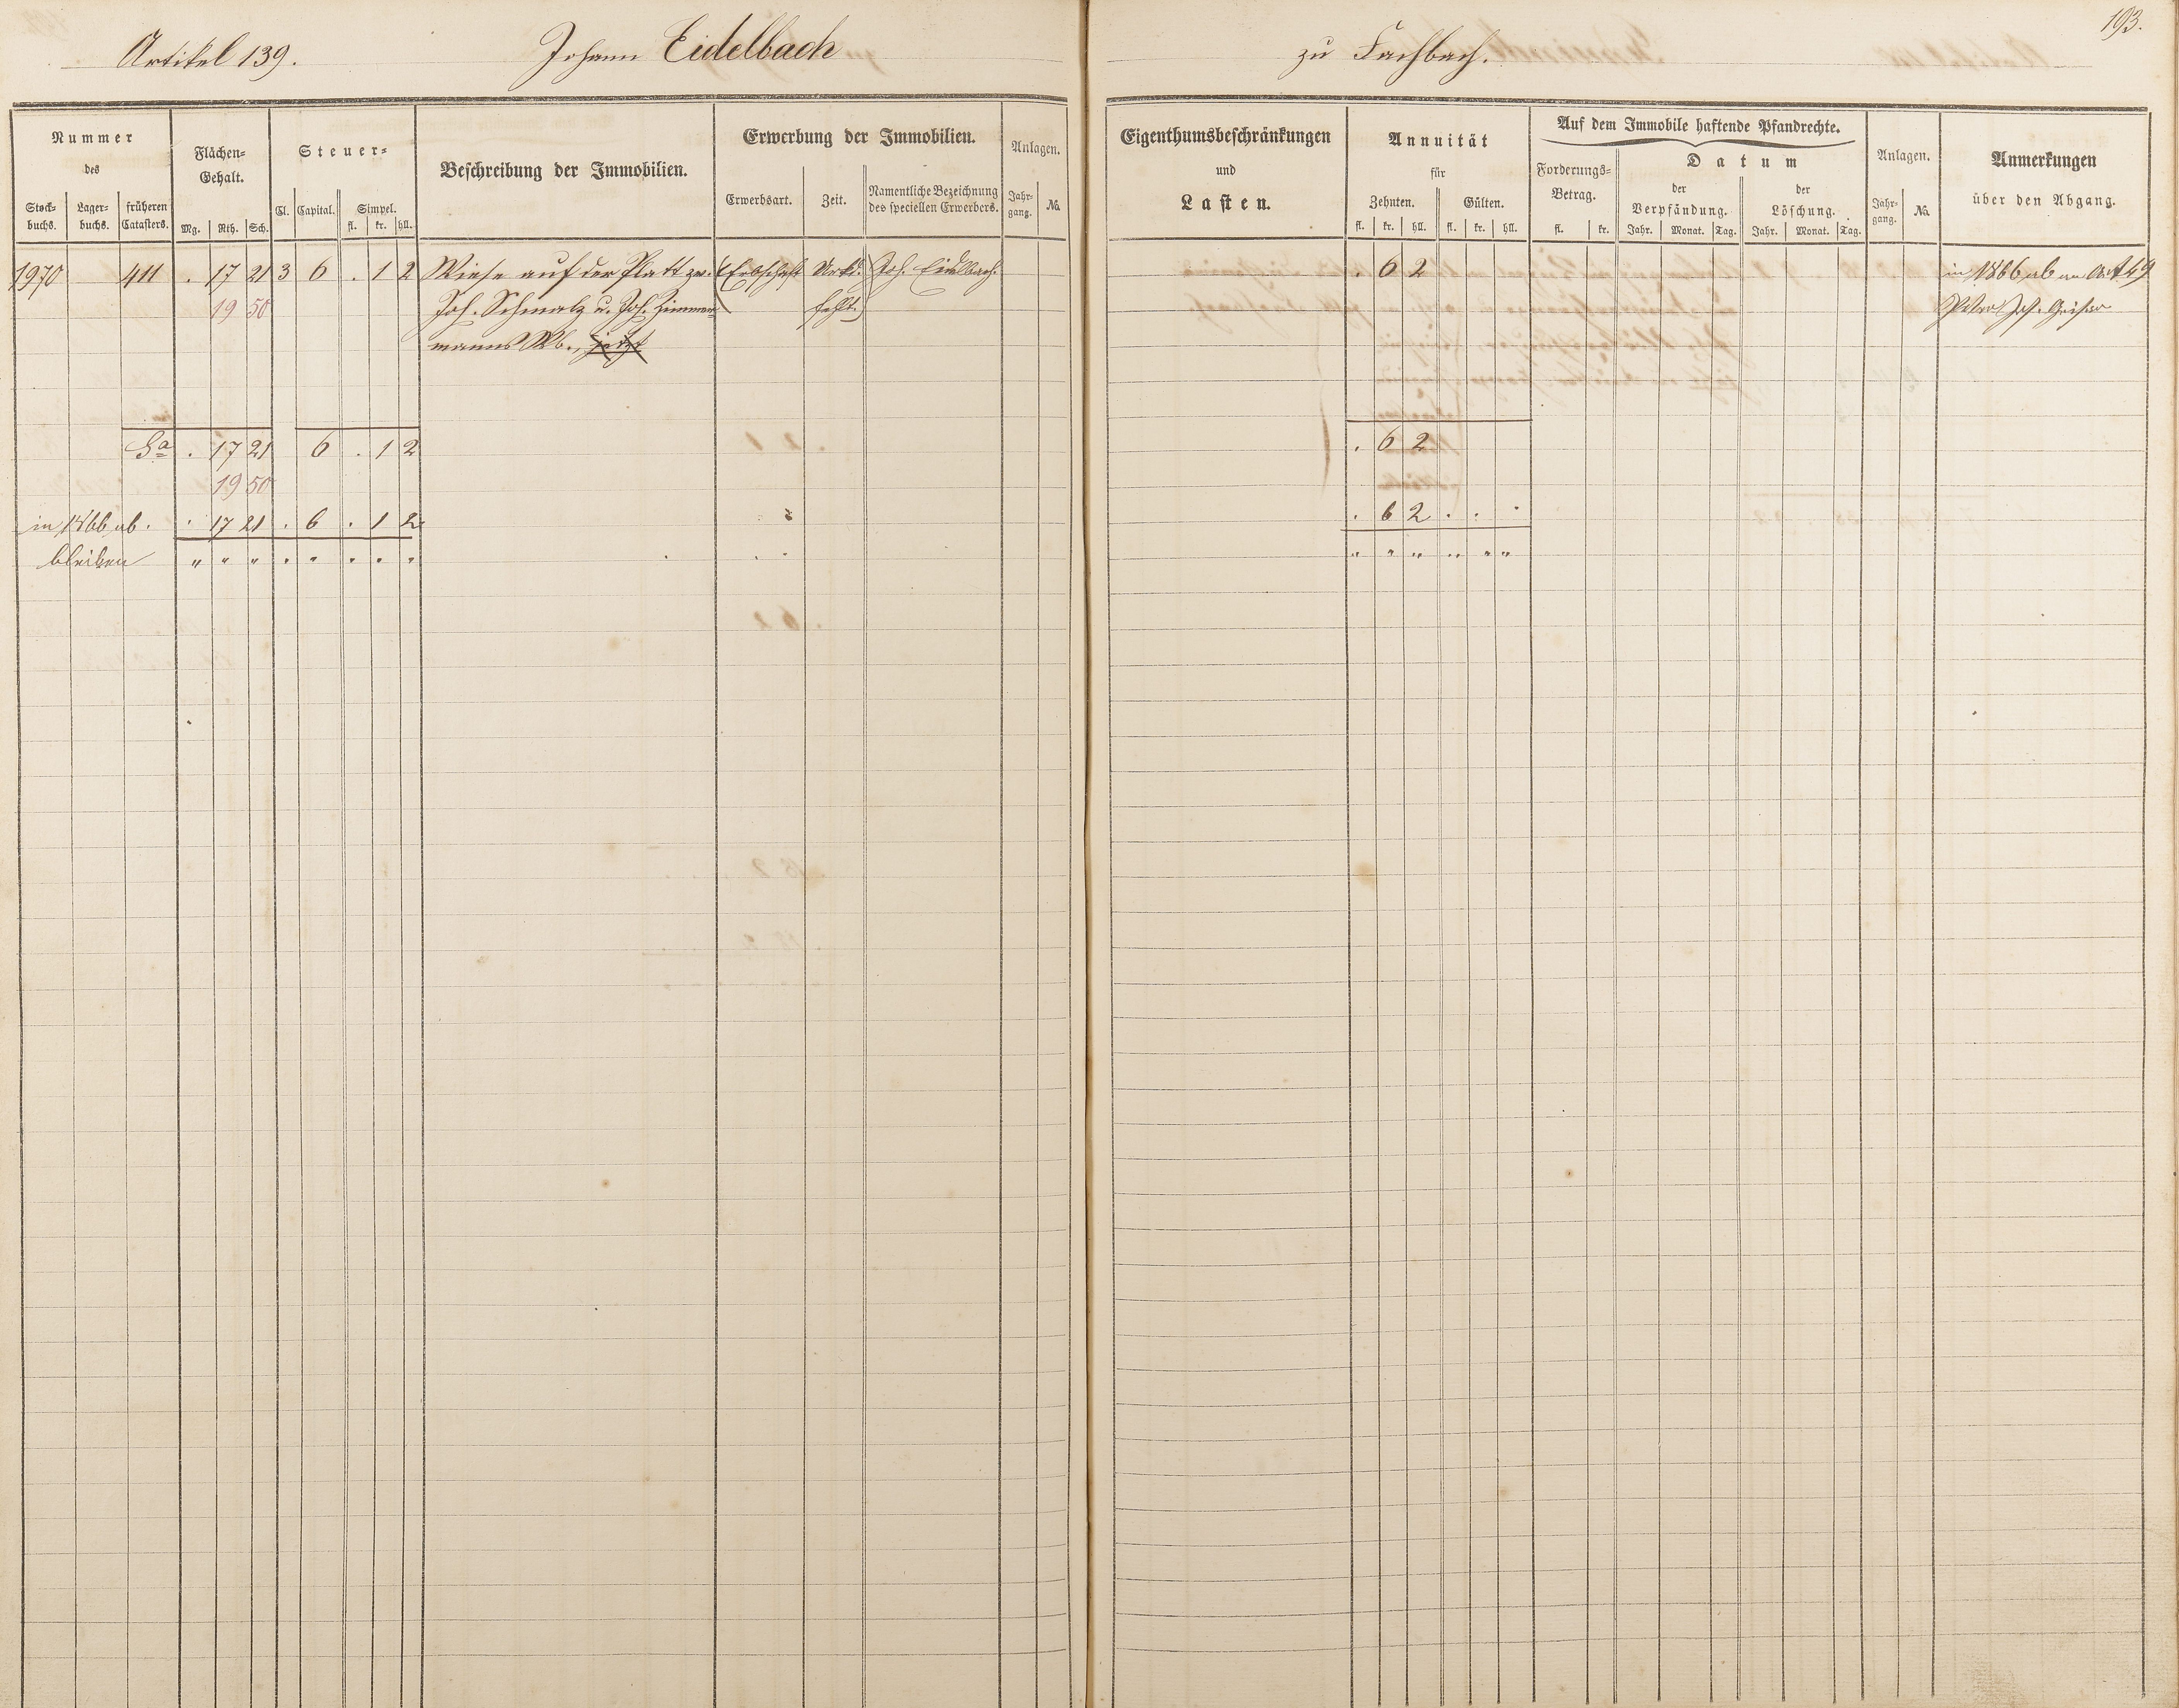 193.
Artikel 139. Johann Eidelbach zu Fachbach.
Nummer des
Stock- buchs. Lager- buchs. früheren Catasters.
Flächen- Gehalt.
Mg. Rth. Sch.
Steuer-
Cl. Capital. Simpel.
fl. kr. hll.
Beschreibung der Immobilien.
Erwerbung der Immobilien.
Erwerbsart. Zeit. Namentliche Bezeichnung des speciellen Erwerbers.
Anlagen.
Jahr- gang. No.
Eigenthumsbeschränkungen
und
Lasten.
Annuität
für
Zehnten. Gülten.
fl. kr. hll. fl. kr. hll.
Auf dem Immobile haftende Pfandrechte.
Forderungs- Betrag.
fl. kr.
Datum
der Verpfändung. der Löschung.
Jahr. Monat. Tag. Jahr. Monat. Tag.
Anlagen.
Jahr- gang. No.
Anmerkungen
über den Abgang.
1970 411 . 17 21 3 6 . 1 2 Wiese auf der Platt zw. Erbschaft Urkd. Joh. Eidelbach. . 6 2 in 1866 ab an Art 49
19 50 Joh. Schmalz u. Joh. Zimmer- fehlt. Peter Jos.
manns Wb., jetzt
Sa . 17 21 6 . 1 2 . 6 2
19 50
in 1866 ab. . 17 21 . 6 . 1 2 . 6 2 . . .
bleiben " " " . " . . " " " " " " "